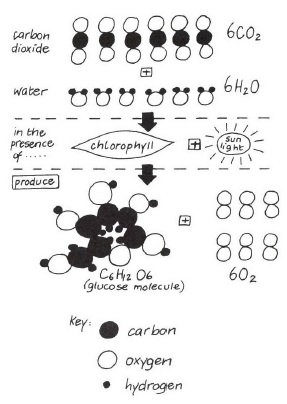 carbon dioxide 6CO2
+
water 6H2O
in the presence of ..... chlorophyll + sun light
produce
+
C6H12O6 6O2
(glucose molecule)
Key: carbon
oxygen
hydrogen